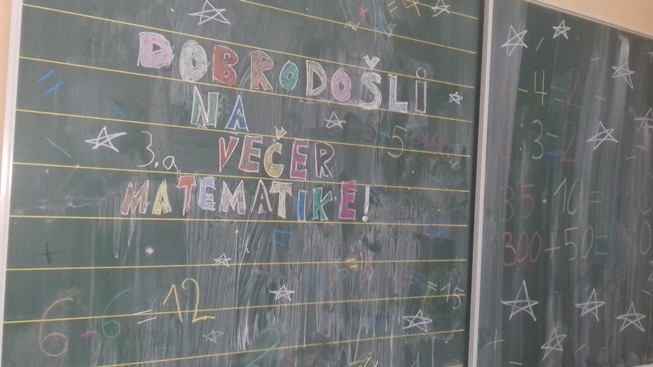 DOBRODOŠLI
NA
3.a VEČER
MATEMATIKE!
6 + 6 = 12
= 15
- 4 = 2
: 3 = 2
35 10 =
300 + 50 =